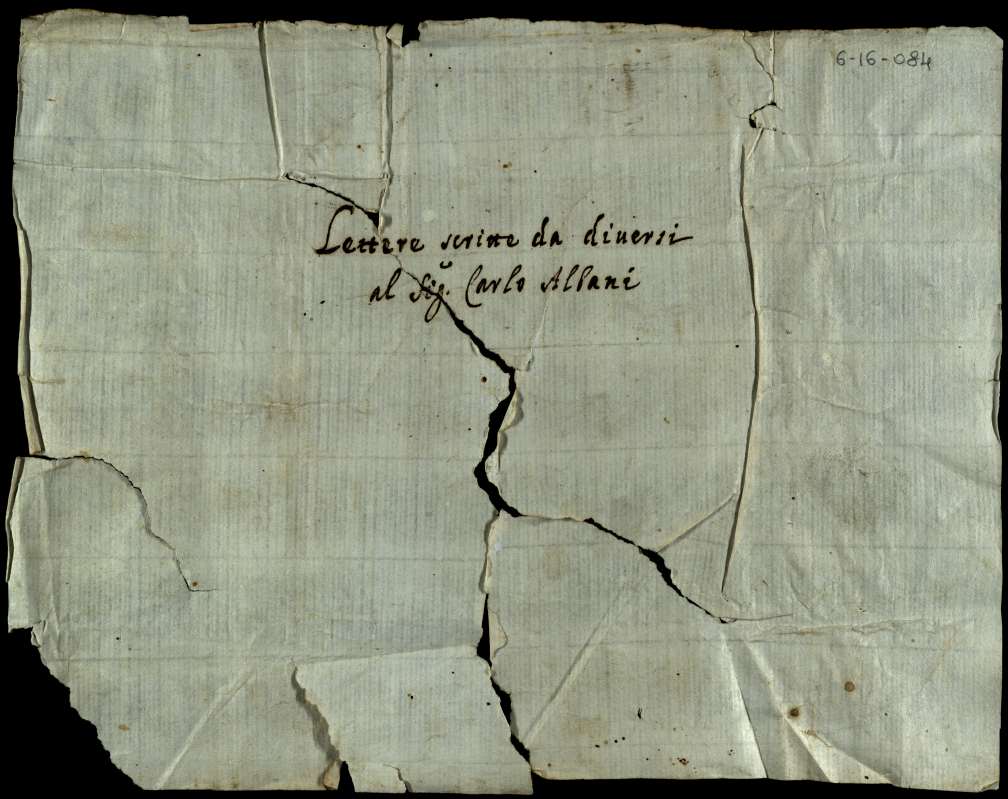 6-16-084
Lettere scritte da diuersi
al Sig.^r Carlo Albani